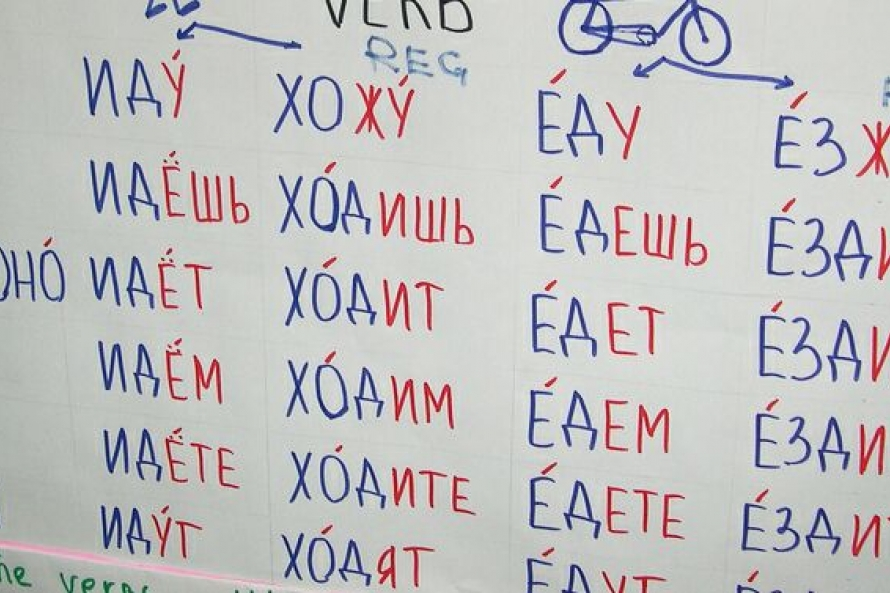 VERB
REG
ИДУ́ ХОЖУ́ Е́ДУ Е́ЗЖ
ИДЁШЬ ХО́ДИШЬ Е́ДЕШЬ Е́ЗДИ
ОНО́ ИДЁТ ХО́ДИТ Е́ДЕТ Е́ЗДИ
ИДЁМ ХО́ДИМ Е́ДЕМ Е́ЗДИ
ИДЁТЕ ХО́ДИТЕ Е́ДЕТЕ Е́ЗДИТ
ИДУ́Т ХО́ДЯТ Е́ДУТ